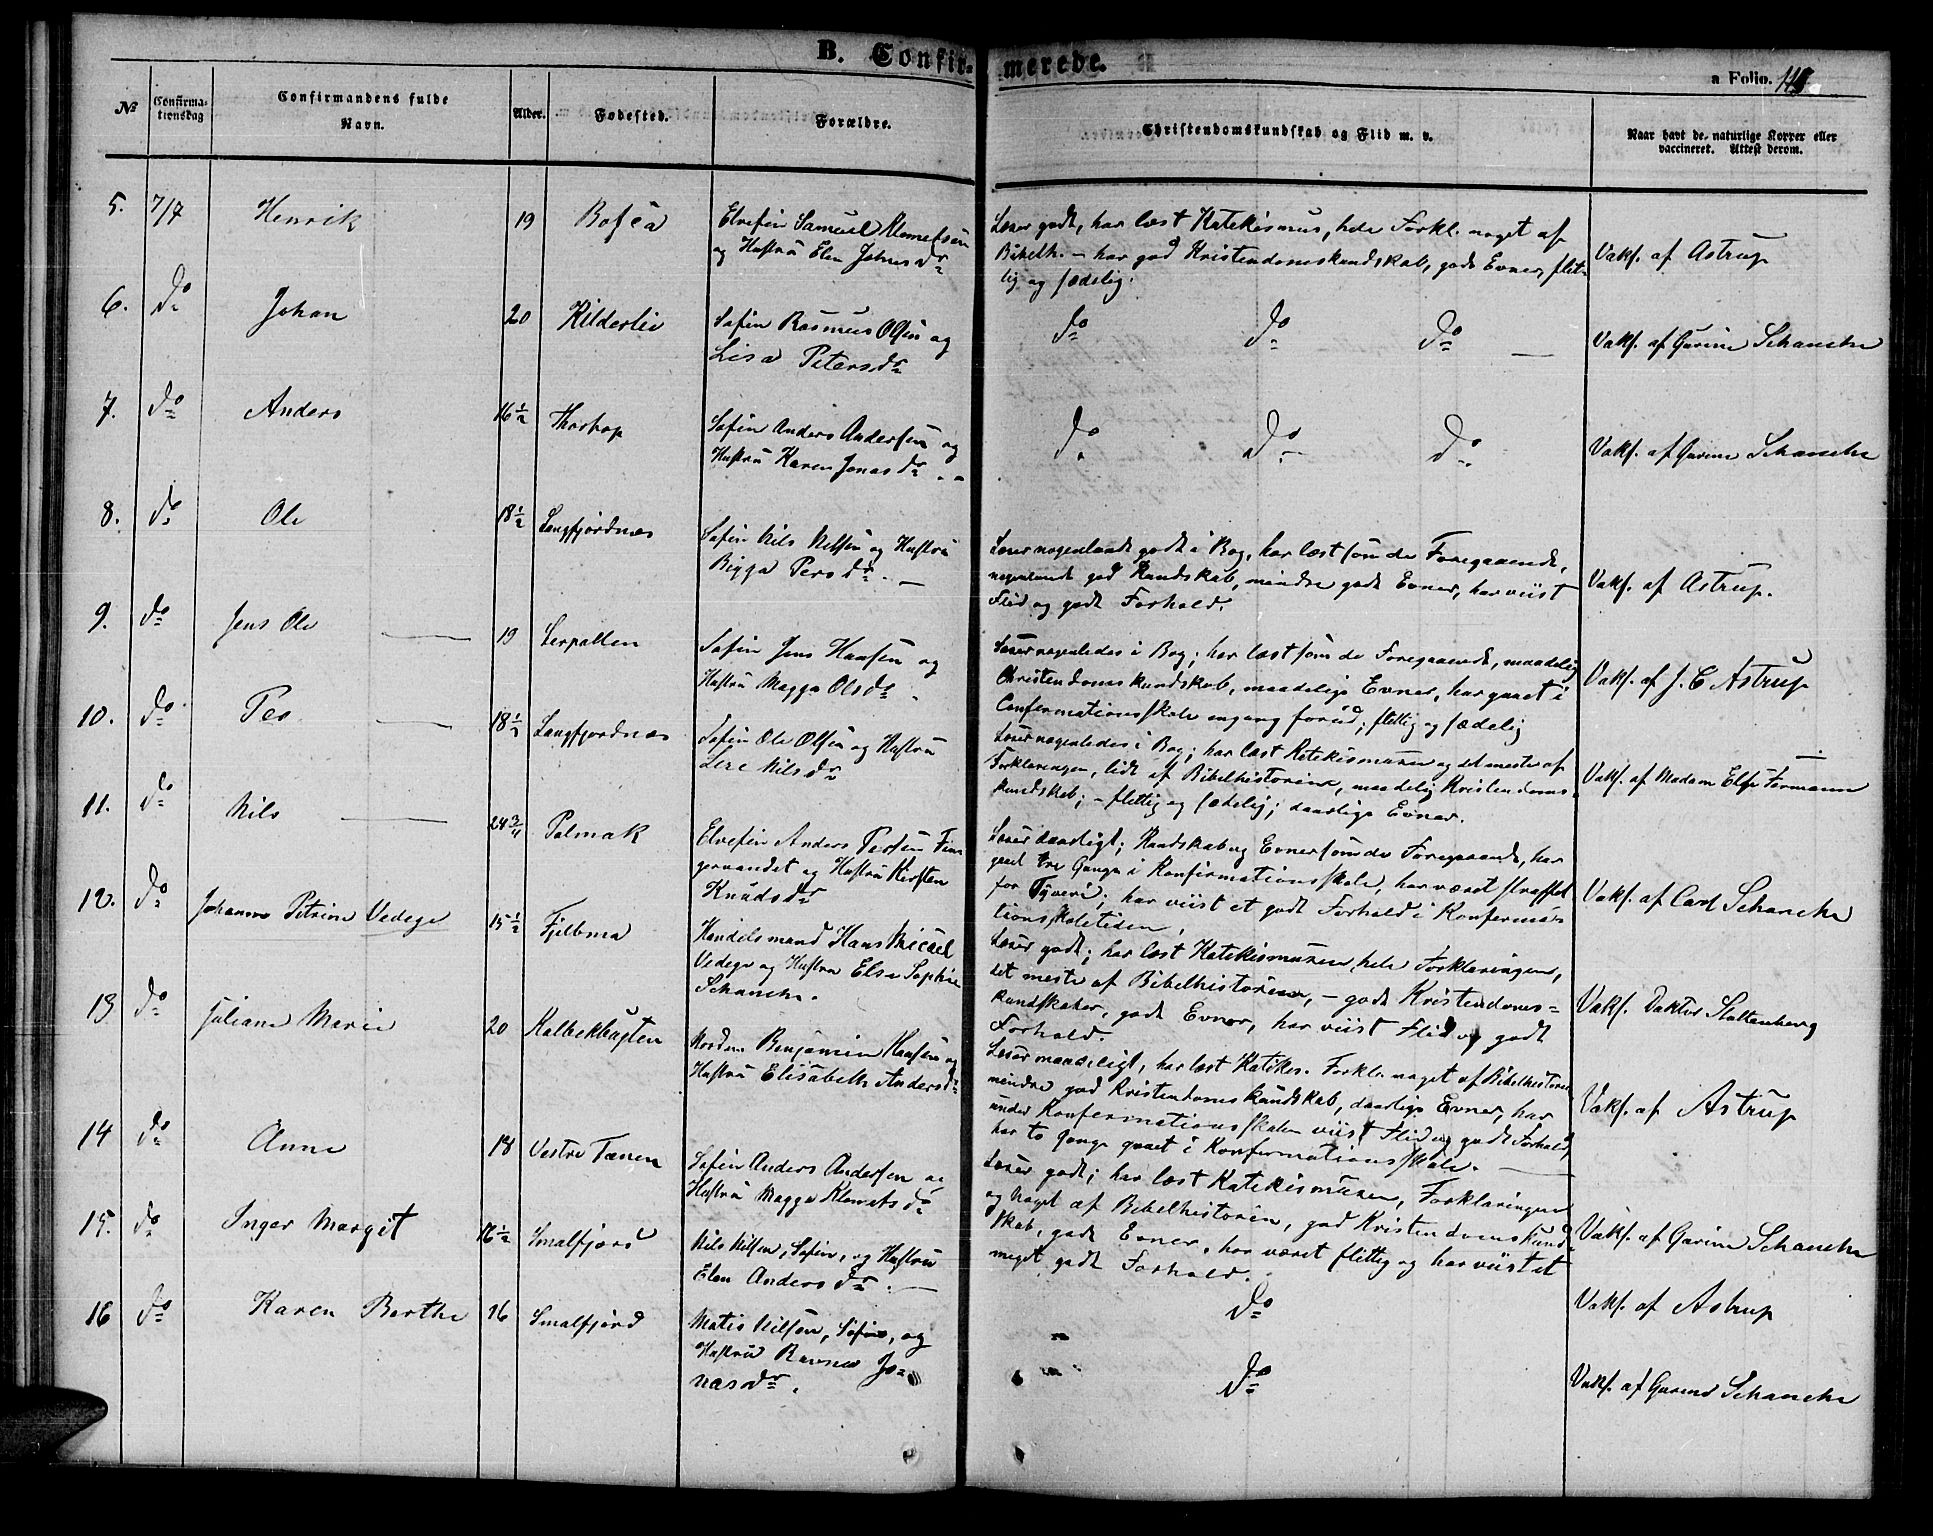 B. Confirmerede.
a Folio.
No
Confirmationsdag
Confirmandens fulde Navn.
Alder.
Fødested.
Forældre.
Christendomskundskab og Flid m. v.
Naar havt de naturlige Kopper eller vaccineret. Attest derom.
5. 7/7 Henrik 19
Elvefin Samuel Klemetsen
og Hustru Elen Johns Dr
Læser godt, har læst Katekismus, hele Forkl. noget af
Bibelh. – har god Kristendomskundskab, gode Evner, flit-
tig og sædelig.
Vakf. af Astrup
6. do Johan 20 Kilderlie
Søfin Rasmus Olsen og
Lisa Peters Dr
do do do
Vakf. af Gurine Schanche
7. do Anders 16 1/2
Søfin Anders Andersen og
Hustru Karen Jonas Dr
do do do
Vakf. af Gurine Schanche
8. do Ole 18 1/2 Langfjordnæs
Søfin Nils Nilsen og Hustru
Bigga Pers Dr. —
Læser nogenlunde godt i Bog, har læst som de Foregaaende,
nogenlunde god Kundskab, mindre gode Evner, har viist
Flid og godt Forhold.
Vakf. af Astrup.
9. do Jens Ole — 19 Lerpollen
Søfin Jens Hansen og
Hustru Magga Ols Dr
Læser nogenledes i Bog; har læst som de Foregaaende, maadelig
Christendomskundskab, maadelige Evner, har gaaet i
Confirmationsskole engang forud; flittig og sædelig
Vakf. af J. C Astrup
10. do Per — 18 1/2 Langfjordnæs
Søfin Ole Olsen og Hustru
Nils Dr
Læser nogenledes i Bog; har læst Katekismusen og det meste af
Forklaringen, lidt af Bibelhistorien, maadelig Kristendoms-
kundskab; – flittig og sædelig; daarlige Evner.
Vakf. af Madam Else Formann
11. do Nils — 24 3/4 Polmak
Elvefin Anders Persen
og Hustru Kirsten
Knuds Dr
Læser daarligt; Kundskab og Evner som de Foregaaende, har
gaaet tre Gange i Konfirmationsskole, har været straffet
for Tyveri; har viist et godt Forhold i Konfirma-
tionsskoletiden.
Vakf. af Carl Schanche
12. do Johanne Petrine Vedege 15 1/2 Fjelbma
Handelsmand Hans Micael
Vedege og Hustru Else Sophie
Schanche.
Læser godt; har læst Katekismusen, hele Forklaringen,
det meste af Bibelhistorien, – gode Kristendoms-
kundskaber, gode Evner, har viist Flid og godt
Forhold.
Vakf. Doktor Stoltenberg
13 do Juliane Marie 20 Kalbekbugten
Norden Benjamin Hansen og
Hustru Elisabeth Anders Dr
Læser maadeligt, har læst Katekes. Forkl. noget af Bibelhistorien
mindre god Kristendomskundskab, daarlige Evner, har
under Konfermationsskolen viist Flid og godt Forhold,
har to Gange gaaet i Konfermationsskole. —
Vakf. af Astrup
14 do Anne 18 Vestre Tanen
Søfin Anders Andersen og
Hustru Magga Klemets Dr
Læser godt; har læst Katekismusen, Forklaringen
og Noget af Bibelhistorien, god Kristendomskund-
skab, gode Evner, har været flittig og har viist et
meget godt Forhold.
Vakf. af Gurine Schanche
15. do Inger Margit 16 1/2 Smalfjord
Nils Nilsen, Søfin, og Hustru
Elen Anders Dr. —
do
Vakf. af Astrup
16 do Karen Berthe 16 Smalfjord
Matis Nilsen, Søfin, og
Hustru Ravna Jo-
nas Dr.
do
Vakf. af Gurine Schanche